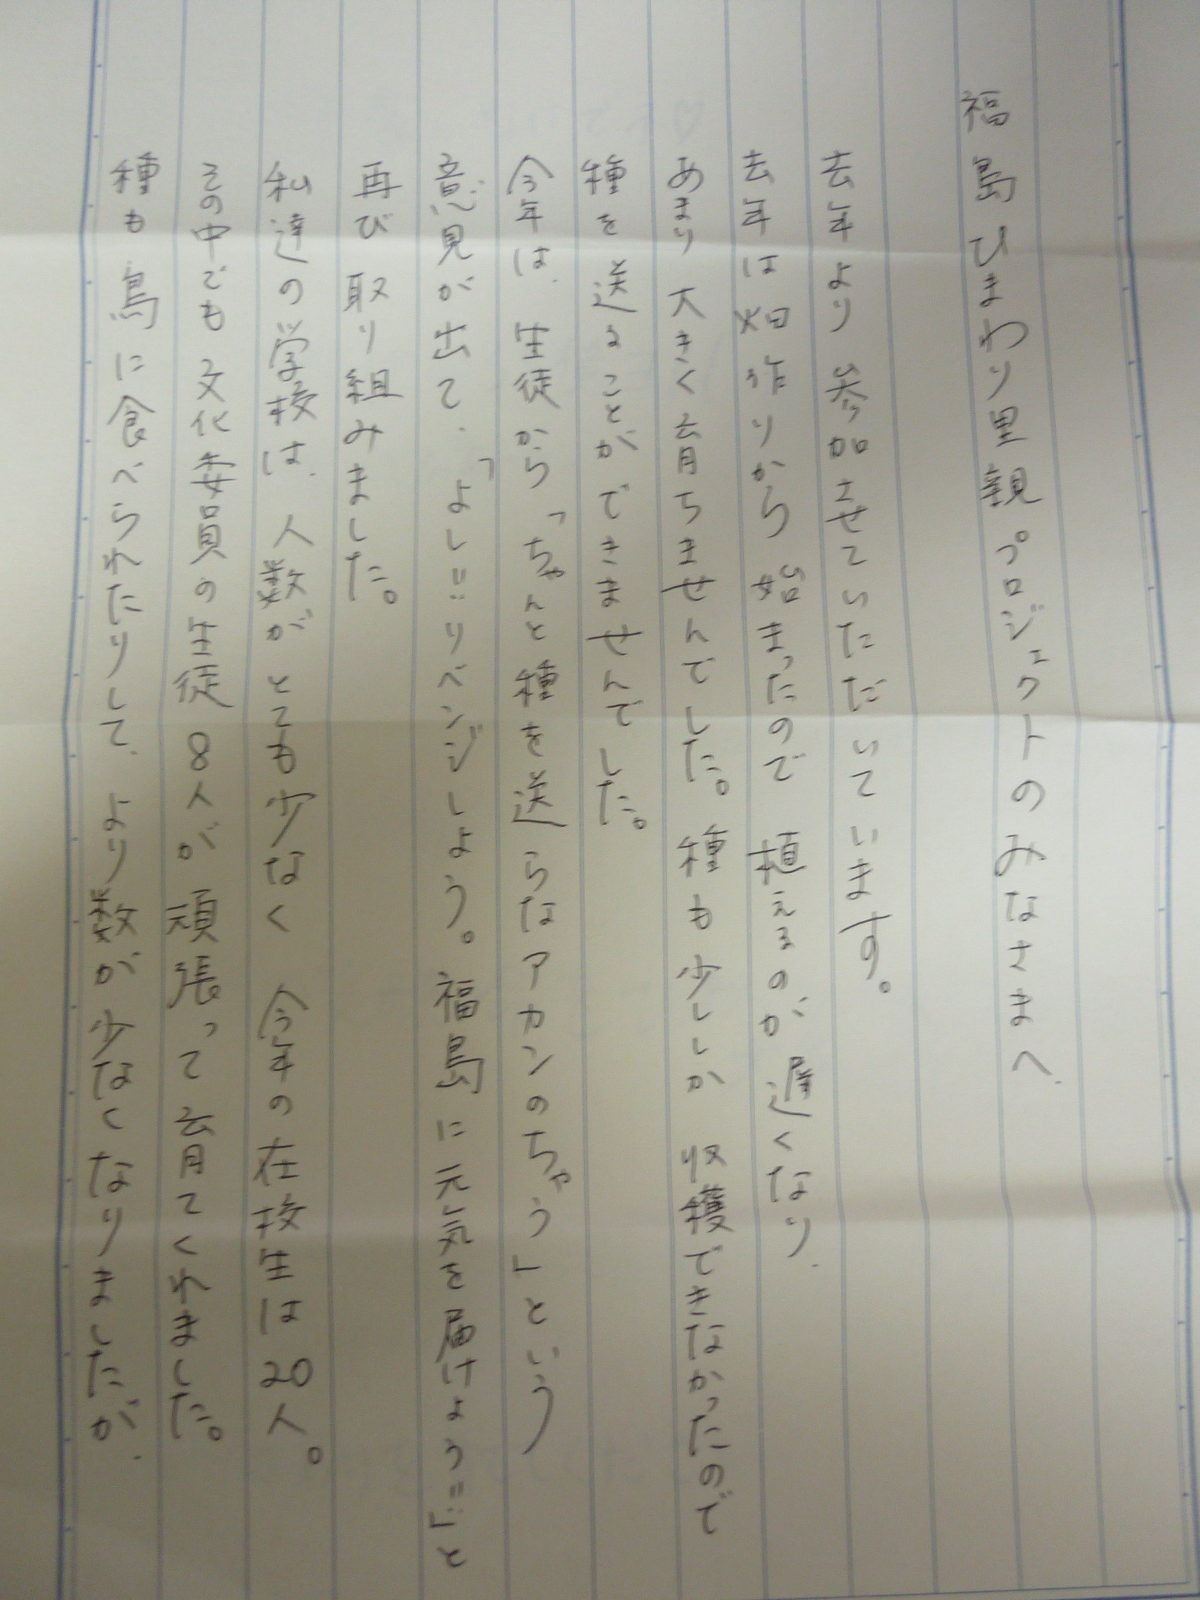 福島ひまわり里親プロジェクトのみなさまへ
去年より参加させていただいています。
去年は畑作りから始まったので 植えるのが遅くなり、
あまり大きく育ちませんでした。種も少ししか 収穫できなかったので
種を送ることができませんでした。
今年は、生徒から「ちゃんと種を送らなアカンのちゃう」という
意見が出て、「よし!!リベンジしよう。福島に元気を届けよう!!」と
再び取り組みました。
私達の学校は、人数がとても少なく 今年の在校生は20人。
その中でも文化委員の生徒8人が頑張って育てくれました。
種も鳥に食べられたりして、より数が少なくなりましたが、